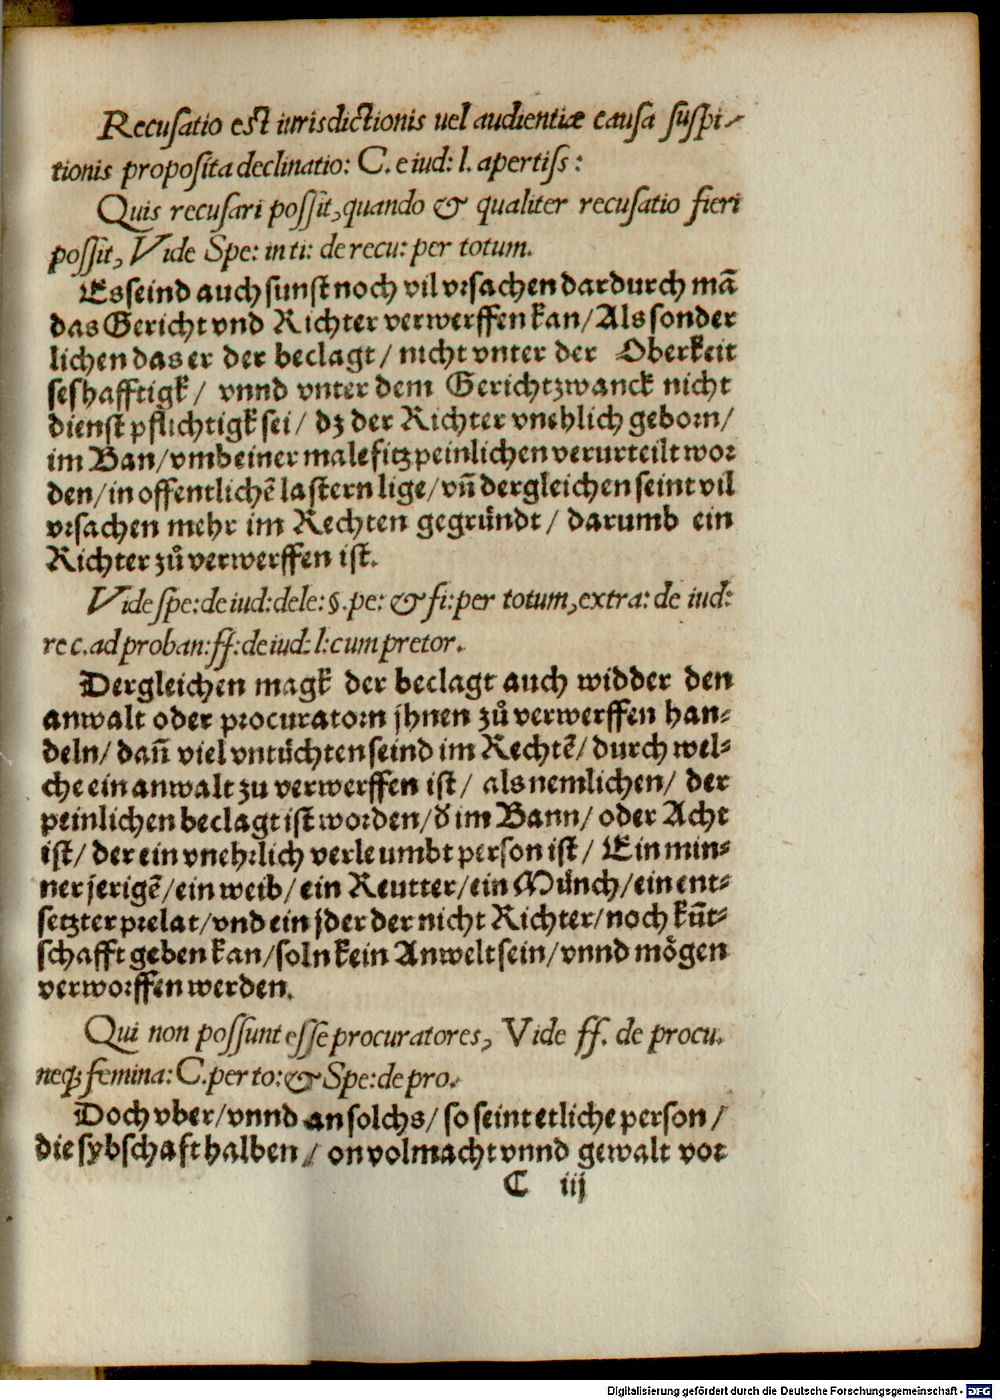 Recuſatio eſt iurisdictionis uel audientiæ cauſa ſuſpi-
tionis propoſita declinatio: C. e iud: l. apertiſs:
Quis recuſari poſſit, quando & qualiter recuſatio fieri
poſſit, Vide Spe: in ti: de recu: per totum.
Es ſeind auch ſunſt noch vil vrſachen dardurch mã
das Gericht vnd Richter verwerffen kan/ Als ſonder
lichen das er der beclagt/ nicht vnter der Oberkeit
ſeſhafftigk/ vnnd vnter dem Gerichtzwanck nicht
dienſt pflichtigk ſei/ dz der Richter vnehlich geborn/
im Ban/ vmb einer malefitz peinlichen verurteilt wor
den/ in offentlichẽ laſtern lige/ vñ dergleichen ſeint vil
vrſachen mehr im Rechten gegründt/ darumb ein
Richter zů verwerffen iſt.
Vide ſpe: de iud: dele: §. pe: & fi: per totum, extra: de iud:
re c. ad proban: ff: de iud: l: cum pretor.
Dergleichen magk der beclagt auch widder den
anwalt oder procuratorn jhnen zů verwerffen han-
deln/ dañ viel vntüchten ſeind im Rechtẽ/ durch wel-
che ein anwalt zu verwerffen iſt/ als nemlichen/ der
peinlichen beclagt iſt worden/ đ im Bann/ oder Acht
iſt/ der ein vnehrlich verleumbt perſon iſt/ Ein min-
ner jerigẽ/ ein weib/ ein Reutter/ ein Münch/ ein ent-
ſetzter prelat/ vnd ein jder der nicht Richter/ noch kũt-
ſchafft geben kan/ ſoln kein Anwelt ſein/ vnnd mögen
verworffen werden.
Qui non poſſunt eſſe procuratores, Vide ff. de procu.
neq; femina: C. per to: & Spe: de pro.
Doch vber/ vnnd an ſolchs/ ſo ſeint etliche perſon/
die ſybſchaft halben/ on volmacht vnnd gewalt vor
C iij
Digitalisierung gefördert durch die Deutsche Forschungsgemeinschaft - DFG